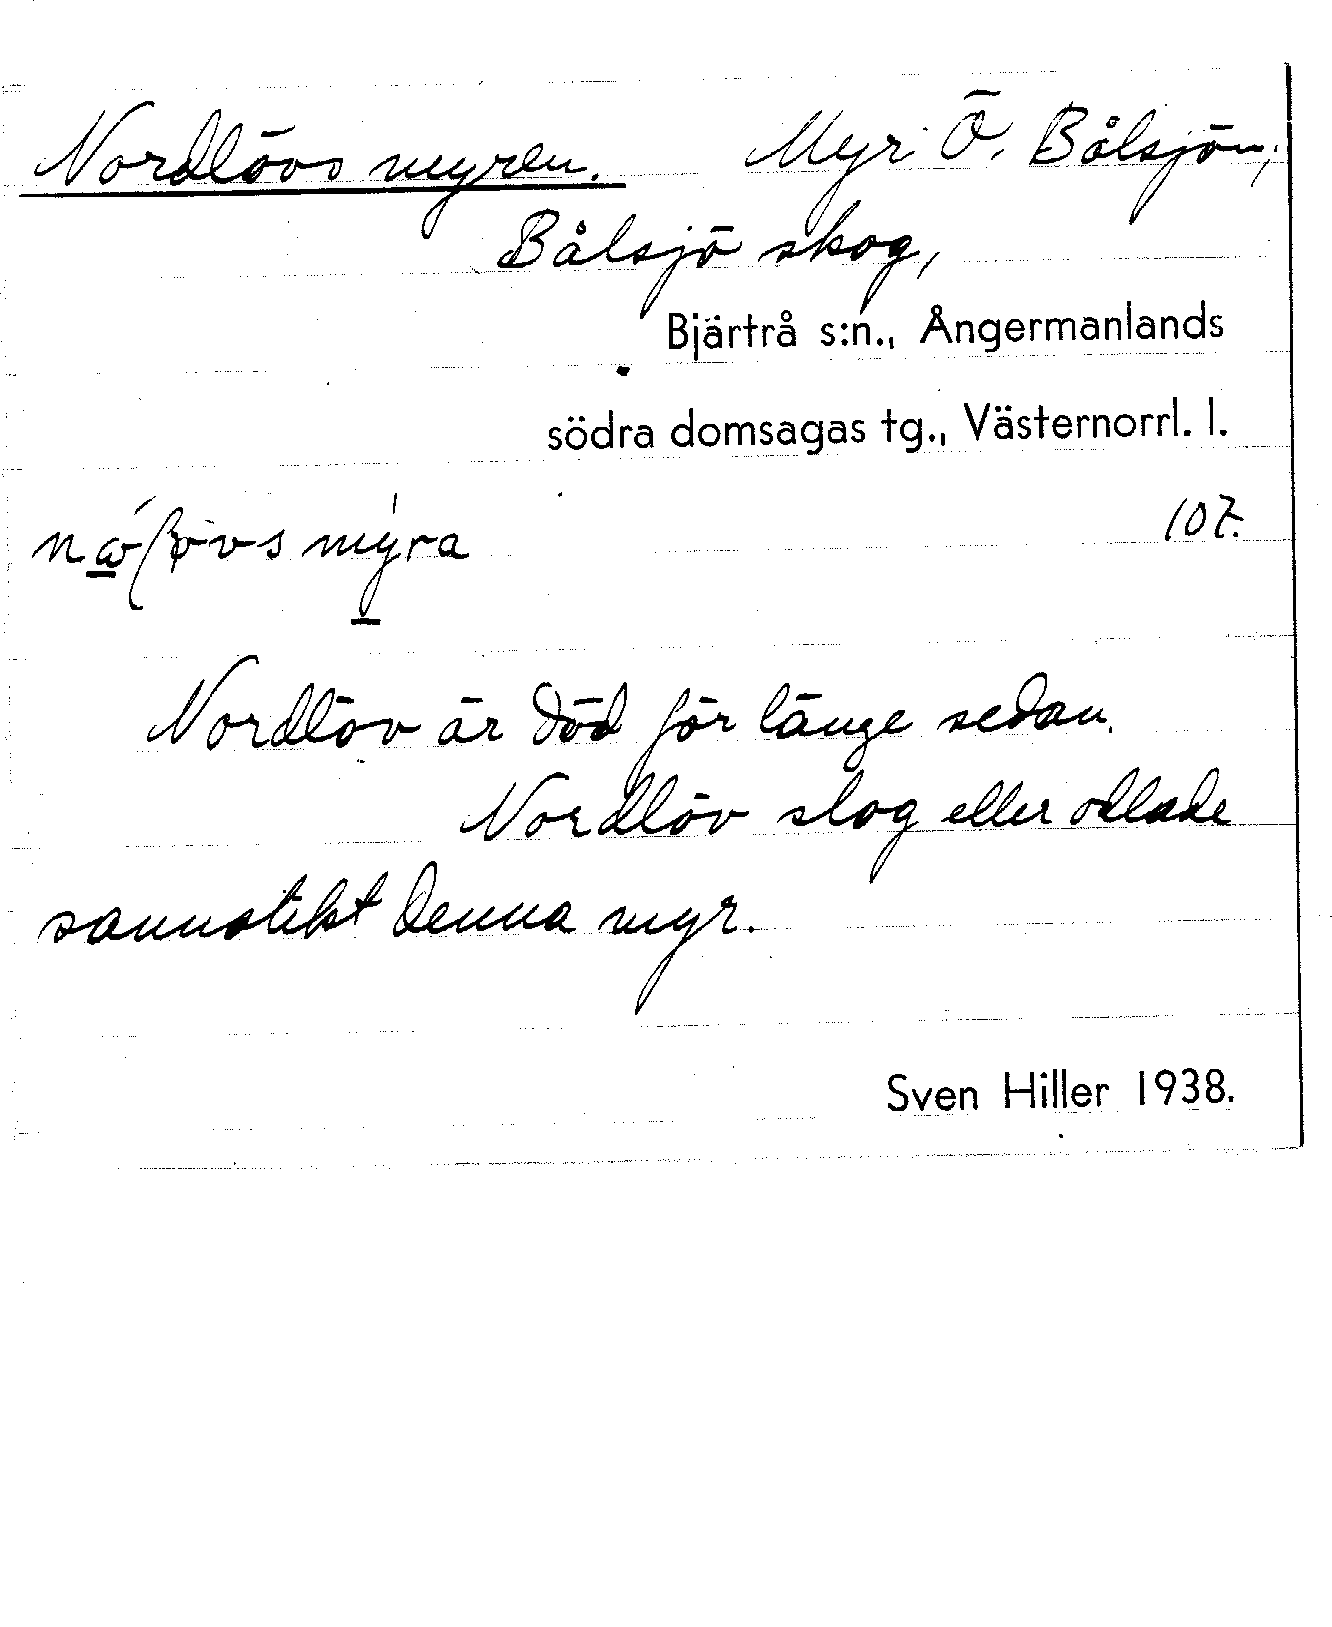 Nordlövs myren. Myr i Ö. Bålsjön,
Bålsjö skog,
Bjärtrå s:n., Ångermanlands
södra domsagas tg., Västernorrl. l.
107.
Nordlöv är död för länge sedan.
Nordlöv slog eller odlade
sannolikt denna myr.
Sven Hiller 1938.